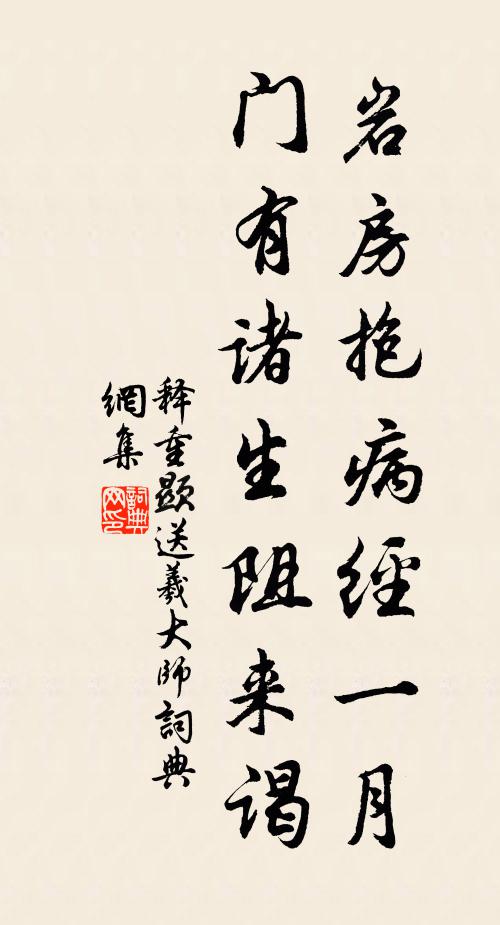 岩房抱病經一月
门有诸生阻来谒
释重顯送羲大師詞典
網集
詞典网印